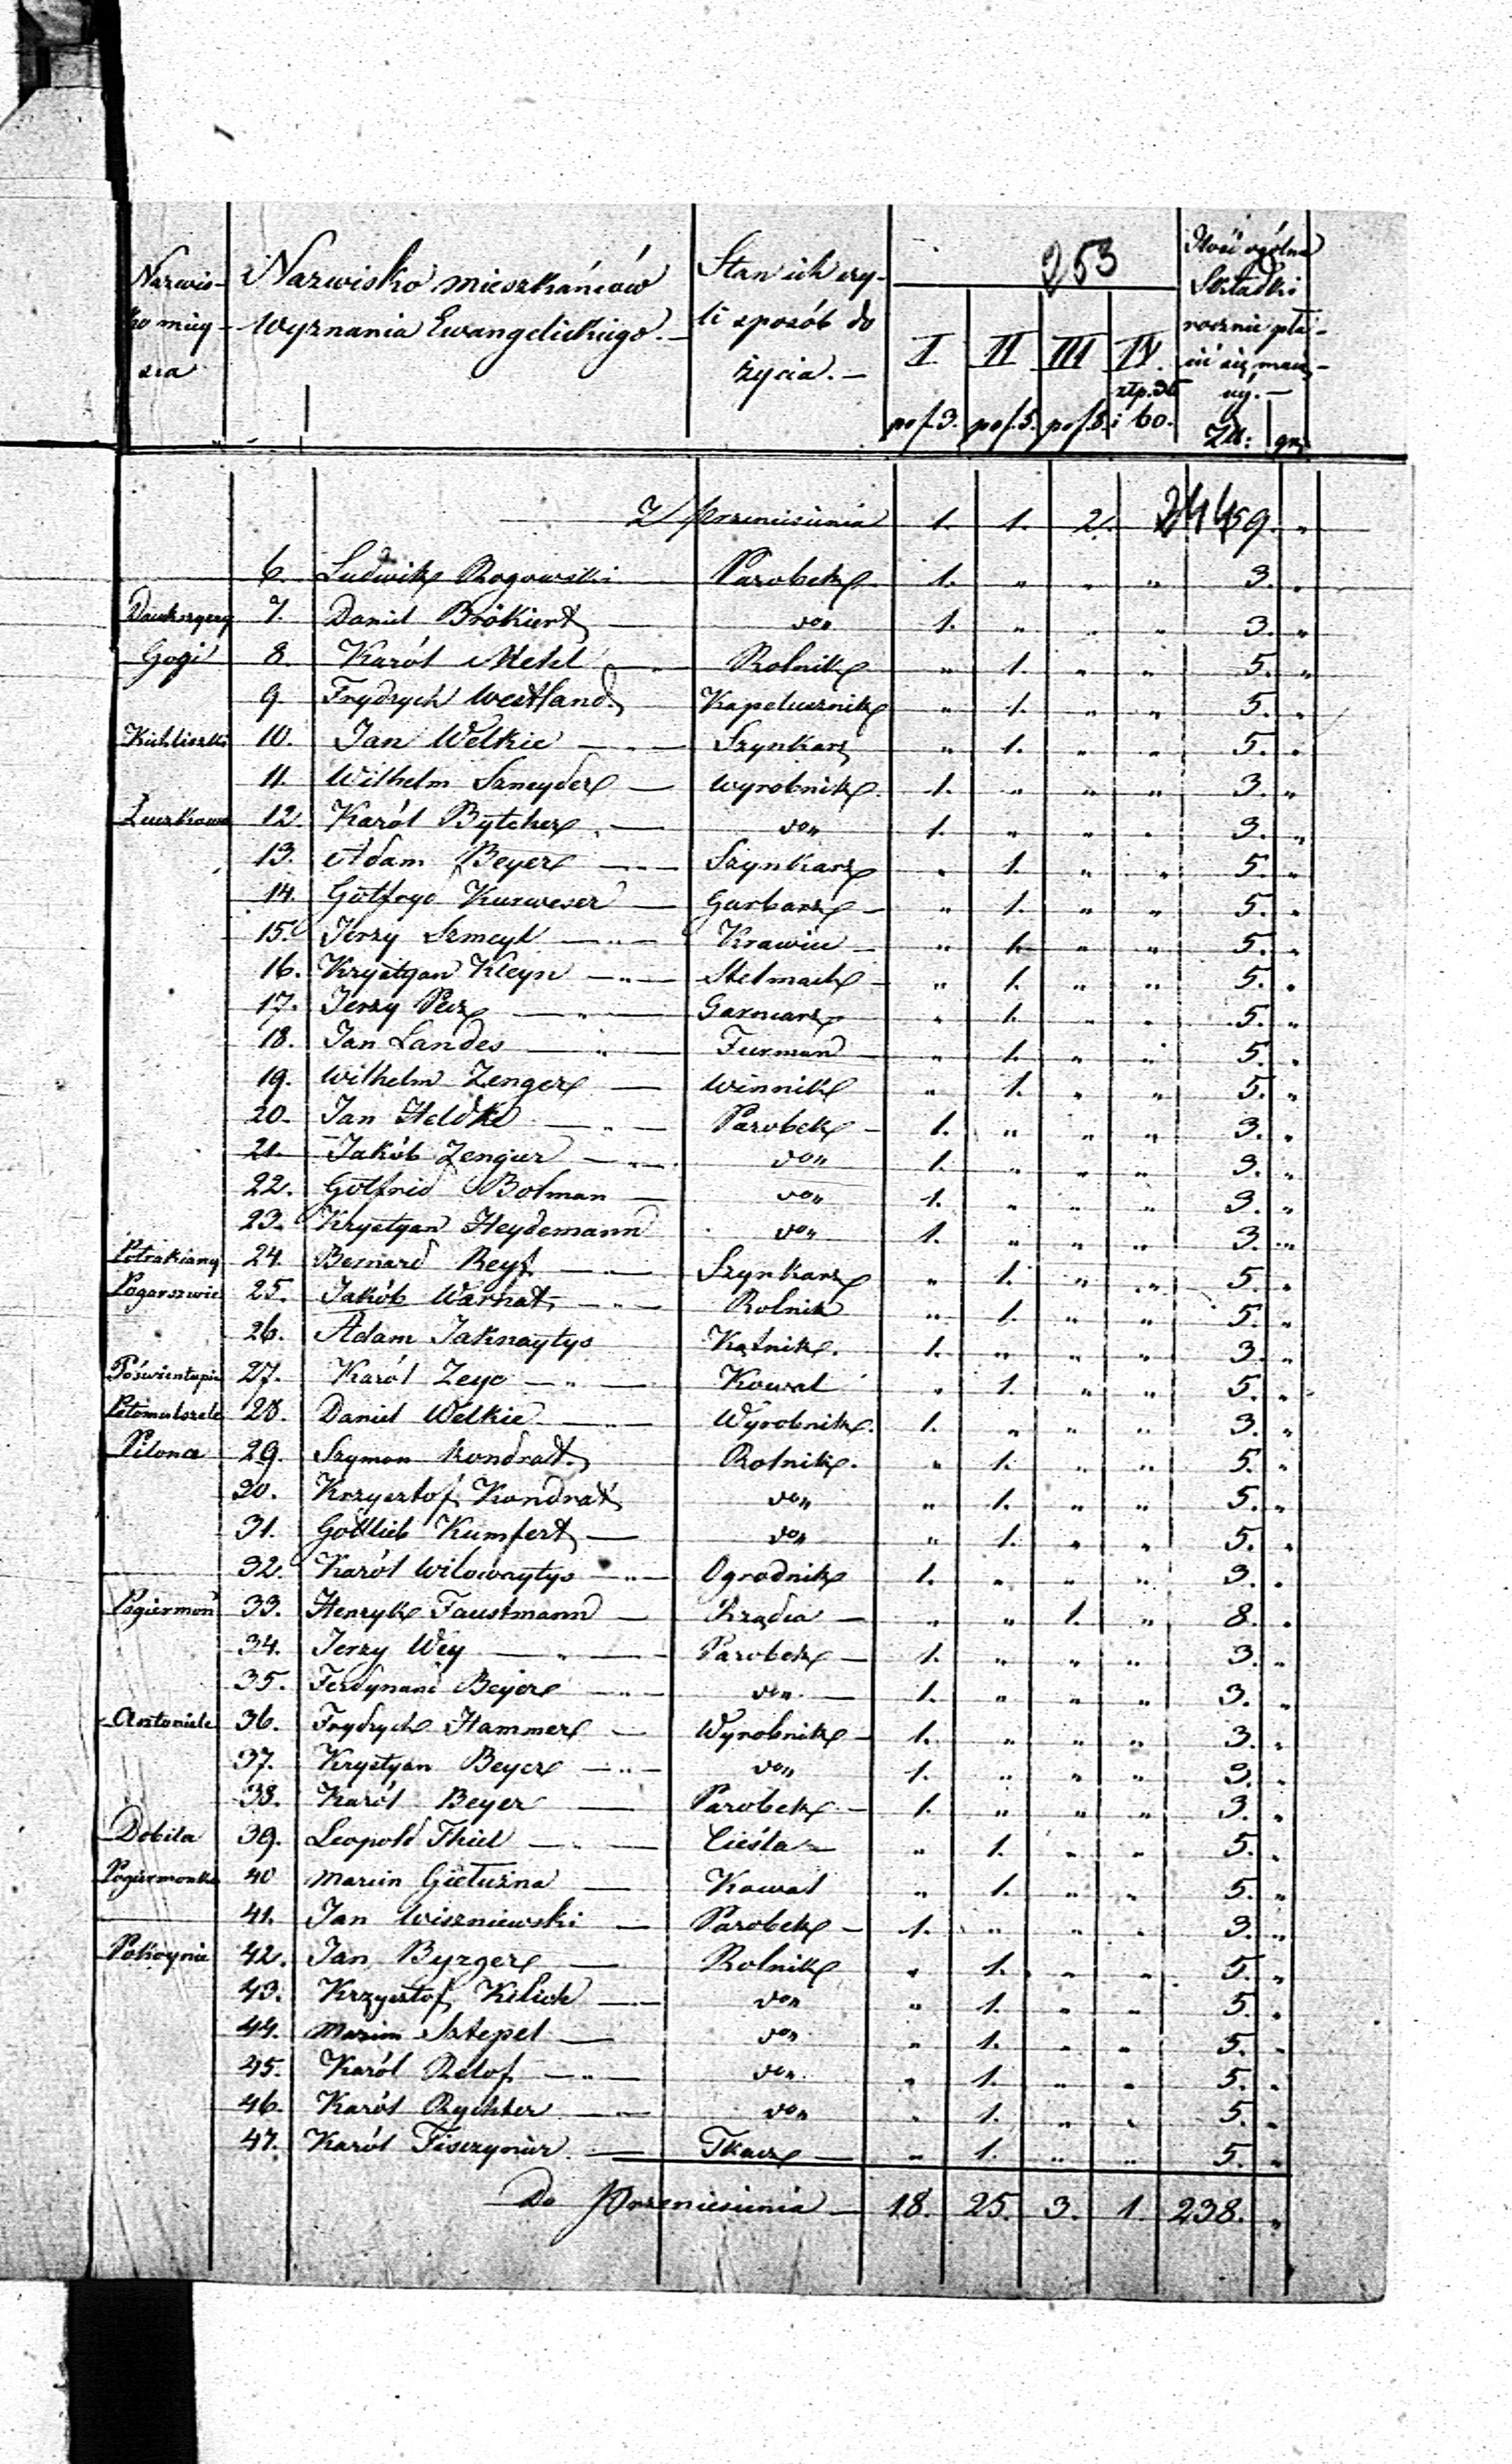 253
Nazwis- Nazwisko mieszkańców Stan ich czy- Ilość ogólna
ko miey- Wyznania Ewangelickiego. - li sposób do I II III IV. Składki
sca życia. - rocznie pła-
cić się mają-
pof. 3. pof. 5. pof. 8. złp. 36 i 60. céy. - Zł: gr:
Z przeniesienia 1. 1. 2. 59. "
6. Ludwik Rogowski Parobek 1. " " " 3. "
7. Daniel Brökiert don 1. " " " 3. "
Gogi 8. Karól Mehl Rolnik " 1. " " 5. "
9. Frydrych Westland Kapelusznik " 1. " " 5. "
10. Jan Welkie Szynkarz " 1. " " 5. "
11. Wilhelm Szneyder wyrobnik 1. " " " 3. "
12. Karól Bytcher don 1. " " " 3. "
13. Adam Beyer Szynkarz " 1. " " 5. "
14. Gotfryd Kurweser Garbarz " 1. " " 5. "
15. Jerzy Szmeyl Krawiec " 1. " " 5. "
16. Krystyan Kleyn Stelmach " 1. " " 5. "
17. Jerzy Pecz Garncarz " 1. " " 5. "
18. Jan Landes Furman " 1. " " 5. "
19. Wilhelm Zenger Winnik " 1. " " 5. "
20. Jan Heldke Parobek 1. " " " 3. "
21. Jakób Zengier don 1. " " " 3. "
22. Gotfrid Bolman don 1. " " " 3. "
23. Krystyan Heydemann don 1. " " " 3. "
24. Bernard Reys Szynkarz " 1. " " 5. "
25. Jakób Warnat Rolnik " 1. " " 5. "
26. Adam Jaknaytys Kątnik. 1. " " " 3. "
27. Karól Zeyc Kowal " 1. " " 5. "
28. Daniel Welkie Wyrobnik. 1. " " " 3. "
Pilona 29. Szymon Kondrat Rolnik. " 1. " " 5. "
30. Krzysztof Kondrat don " 1. " " 5. "
31. Gottlieb Kumfert don " 1. " " 5. "
32. Karól Wilownytys Ogrodnik 1. " " " 3. "
Pogiermoń 33. Henryk Faustmann Rządca " " 1. " 8. "
34. Jerzy Wey Parobek 1. " " " 3. "
35. Ferdynand Beyer don 1. " " " 3. "
Antoniele 36. Frydrych Hammer Wyrobnik 1. " " " 3. "
37. Krystyan Beyer don 1. " " " 3. "
38. Karól Beyer Parobek 1. " " " 3. "
Dobila 39. Leopold Thiel Cieśla " 1. " " 5. "
40 Marcin Gieturna Kowal " 1. " " 5. "
41. Jan Wiszniewski Parobek 1. " " " 3. "
Pokoynie 42. Jan Byrger Rolnik " 1. " " 5. "
43. Krzysztof Kilich don " 1. " " 5. "
44. Marcin Sztepel don " 1. " " 5. "
45. Karól Relof don " 1. " " 5. "
46. Karól Rychter don " 1. " " 5. "
47. Karól Fiszynier Tkacz " 1. " " 5. "
Do przeniesienia 18. 25. 3. 1. 238. "